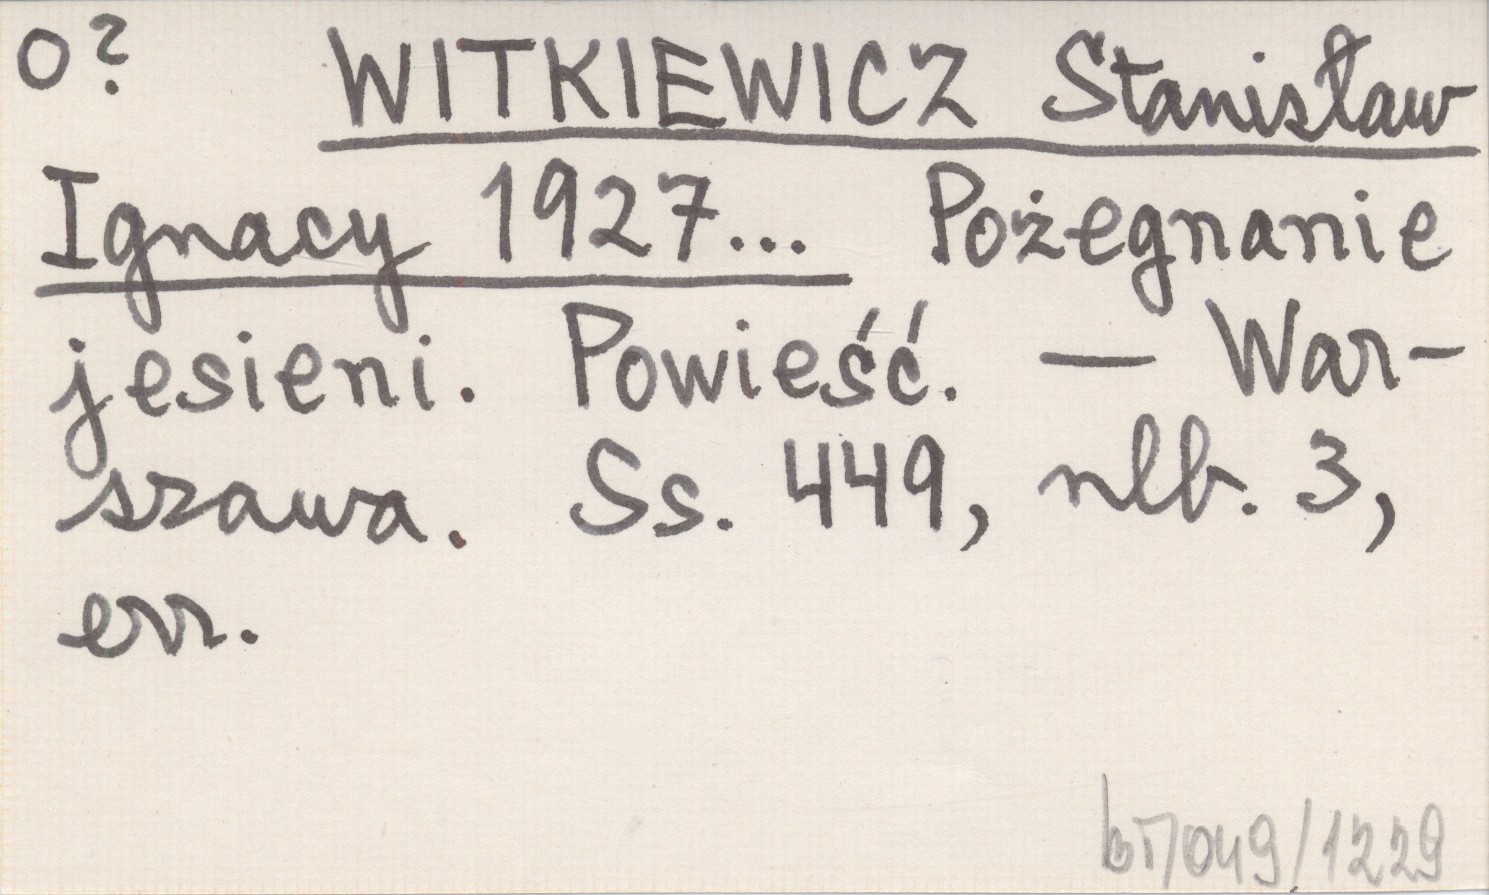 o? WITKIEWICZ Stanisław
Ignacy 1927... Pożegnanie
jesieni. Powieść. — War-
szawa. Ss. 449, nlb. 3,
err.